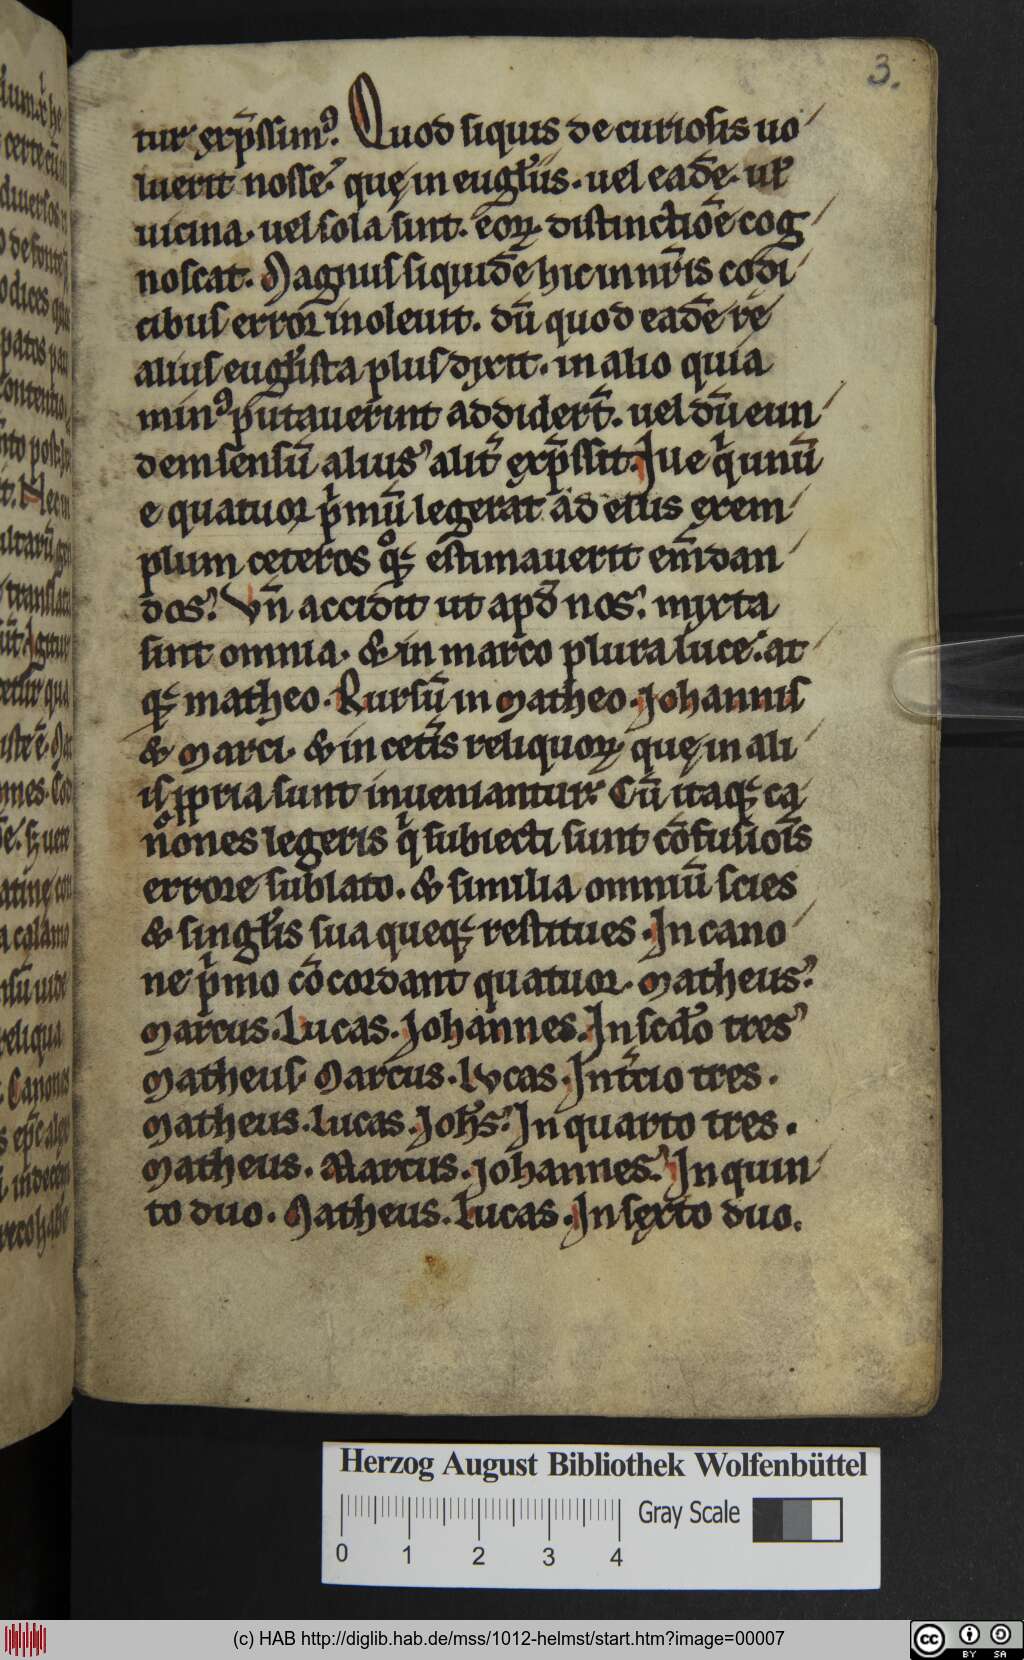 3.
tur exp̄ssimꝰ. Quod siquis de curiosis uo
luerit nosse. quę in eugl̄iis. uel eadē. ul̄
uicina. uel sola sint. eoꝝ. distinctiōe cog
noscat. Magnus siquidē hic in nr̄is codi
cibus error inoleuit. dū quod eadē rē
alius eugl̄ista plus dixit. in alio quia
minꝰ putauerint addider̄t. uel dū eun
dem sensū alius alit̄ exp̄ssit. Ille qͥ unū
e quatuor pͥmū legerat ad eius exem
plum cęteros qͦꝫ estimauerit em̄dan
dos. Vn̄ accidit ut apd̄ nos. mixta
sint omnia. & in marco plura luce. at
qꝫ matheo. Rursū in Matheo. Johannis
& Marci. & in cet̄is reliquoꝝ quę in ali
is ꝓpria sunt inueniantur. Cū itaqꝫ ca
nones legeris qͥ subiecti sunt cōfusiōis
errore sublato. & similia omniū scies
& singl̄is sua queqꝫ restitues. In cano
ne pͥmo cōcordant quatuor. Matheus.
Marcus. Lucas. Johannes. In scd̄o tres
Matheus. Marcus. Lvcas. In t̄cio tres.
Matheus. Lucas. Joh̄s. In quarto tres.
Matheus. Marcus. Johannes. In quin
to duo. Matheus. Lucas. In sexto duo.
Herzog August Bibliothek Wolfenbüttel
Gray Scale
0 1 2 3 4
(c) HAB http://diglib.hab.de/mss/1012-helmst/start.htm?image=00007
cc BY SA